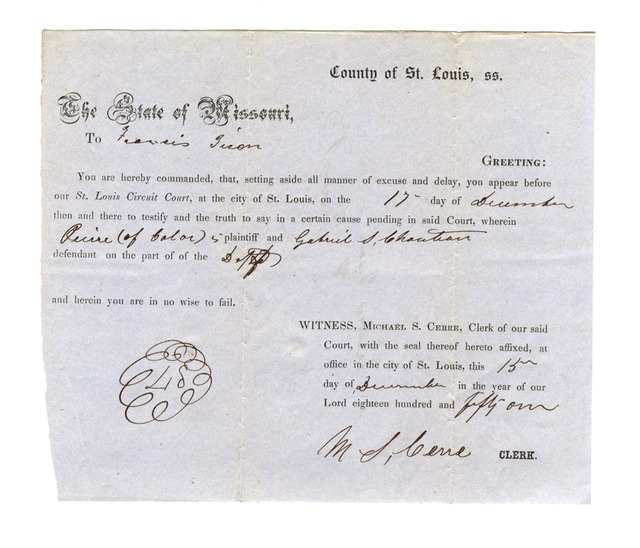 County of St. Louis, ss.
The State of Missouri,
To Francis Tison
GREETING:
You are hereby commanded, that, setting aside all manner of excuse and delay, you appear before
our St. Louis Circuit Court, at the city of St. Louis, on the 17 day of December
then and there to testify and the truth to say in a certain cause pending in said Court, wherein
Pierre (of Color) is plaintiff and Gabriel S. Chouteau
defendant on the part of of the Deft
and herein you are in no wise to fail.
WITNESS, MICHAEL S. CERRE, Clerk of our said
Court, with the seal thereof hereto affixed, at
office in the city of St. Louis, this 15th
day of December in the year of our
Lord eighteen hundred and fifty one
M. S. Cerre CLERK.